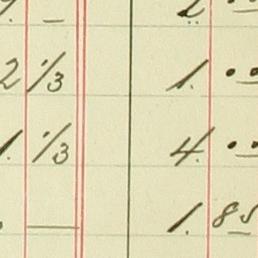 2 1/3 1. ..
1. 1/3 4. ..
1. 85